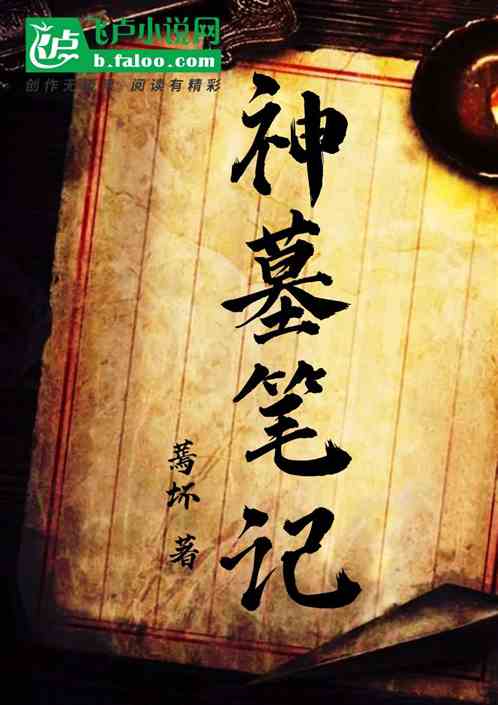 飞卢小说网
b.faloo.com
创作无极限 阅读有精彩
神墓笔记
蔫坏 著